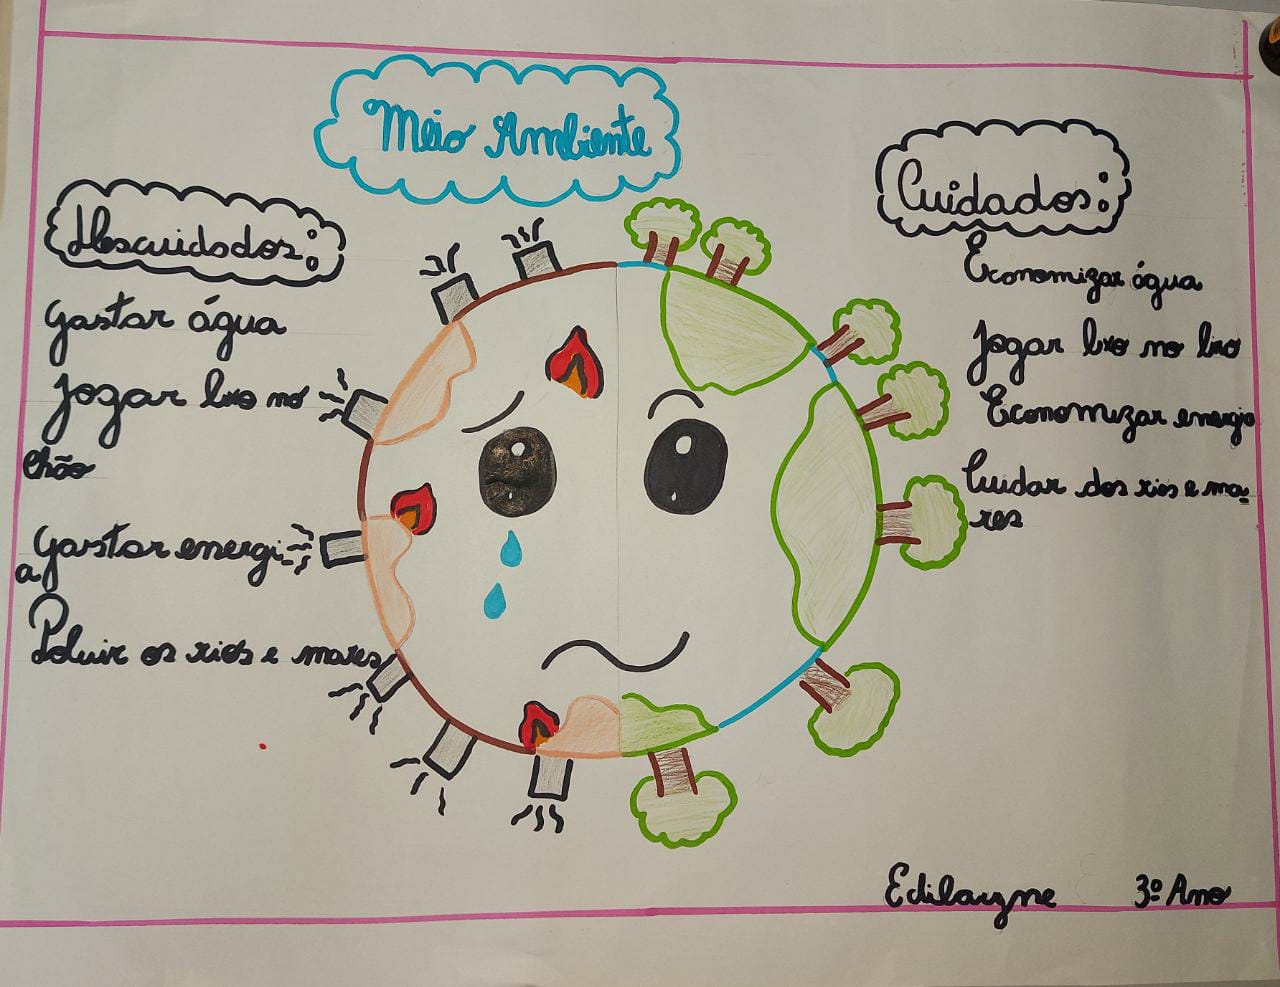 Meio Ambiente
Descuidados:
Gastar água
Jogar lixo no
chão
Gastar energi
a
Poluir os rios e mares
Cuidados:
Economizar água
Jogar lixo no lixo
Economizar energia
Cuidar dos rios e ma
res
Edilayne 3º Ano